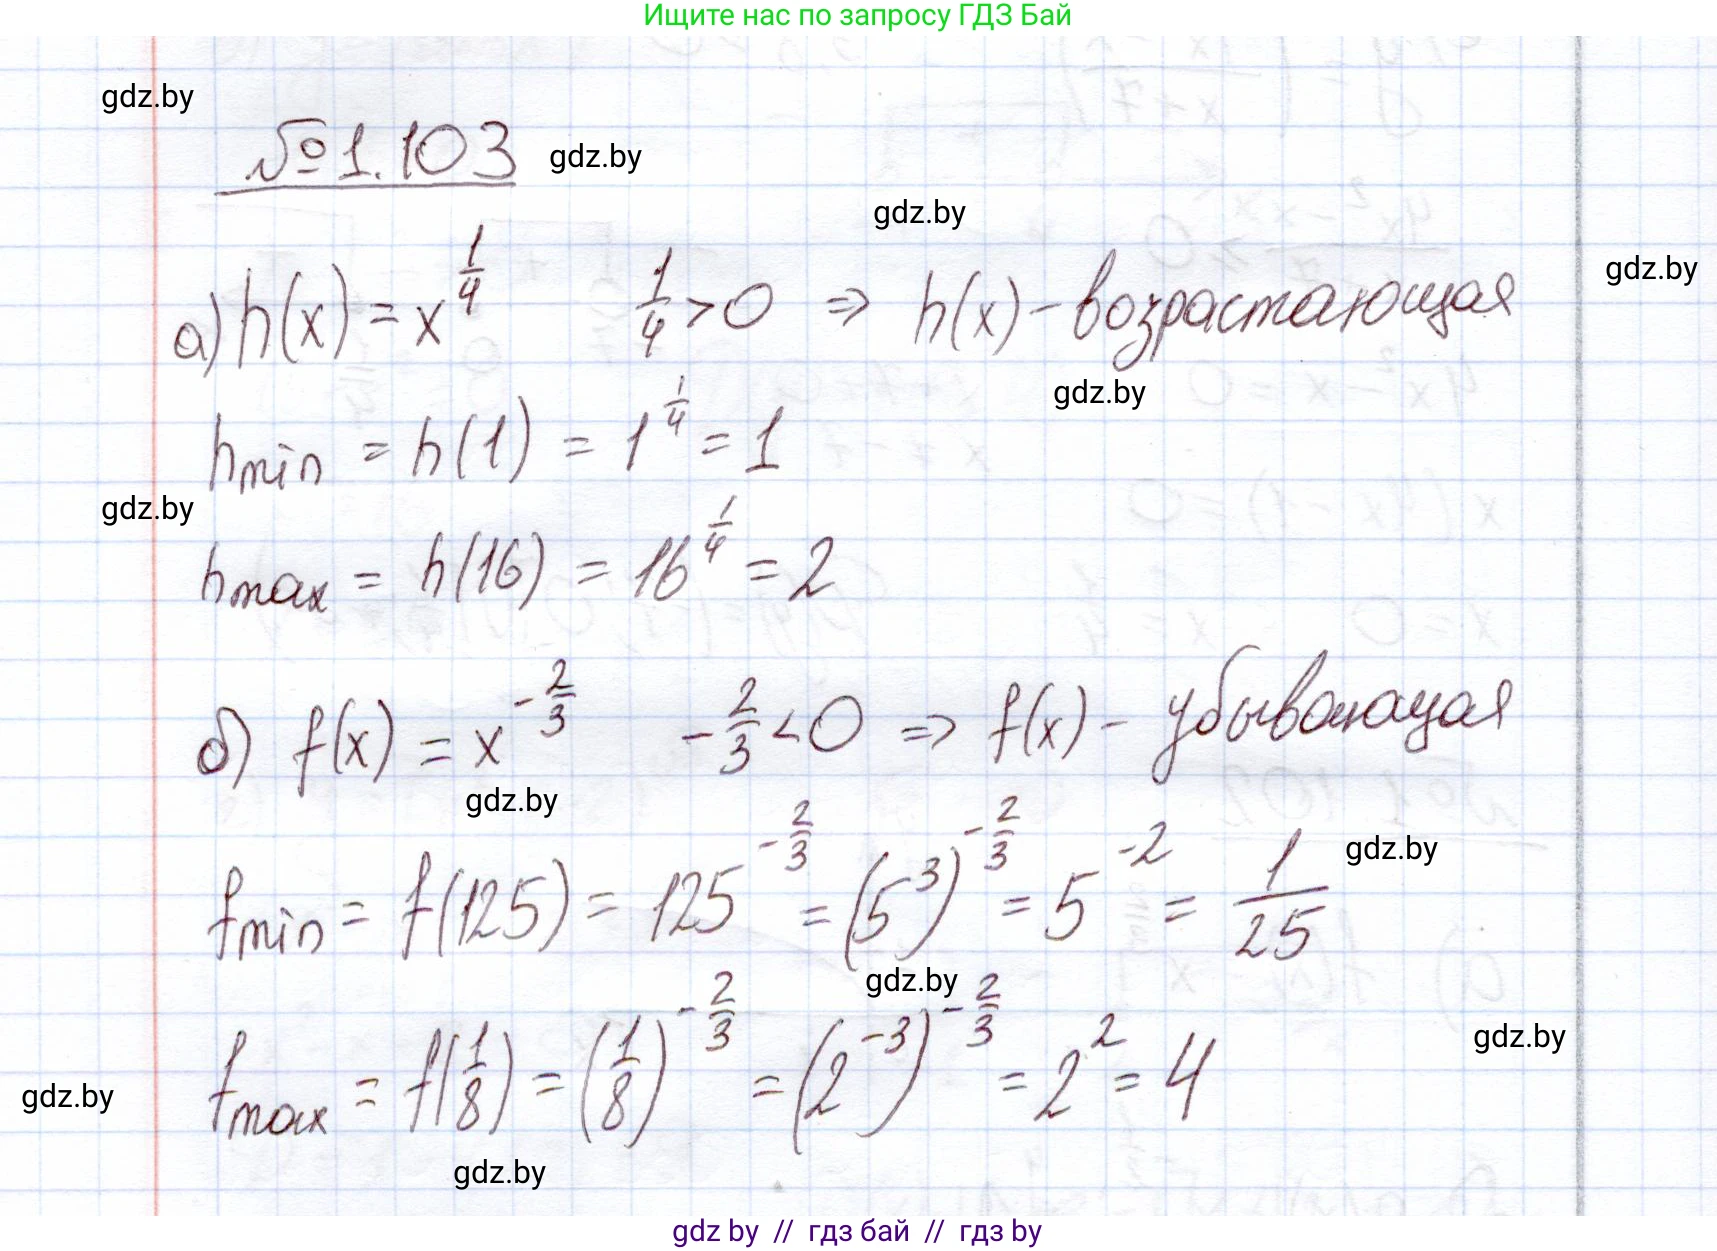 Ищите нас по запросу ГДЗ Бай
gdz.by
№1.103 gdz.by
gdz.by
gdz.by
а) h(x) = x^{1/4} 1/4 > 0 ⇒ h(x) – возрастающая
gdz.by
h_min = h(1) = 1^{1/4} = 1
gdz.by
h_max = h(16) = 16^{1/4} = 2
б) f(x) = x^{-2/3} -2/3 < 0 ⇒ f(x) – убывающая
gdz.by
gdz.by
f_min = f(125) = 125^{-2/3} = (5^3)^{-2/3} = 5^{-2} = 1/25
gdz.by
gdz.by
f_max = f(1/8) = (1/8)^{-2/3} = (2^{-3})^{-2/3} = 2^2 = 4
gdz.by
gdz.by
gdz by // гдз бай // гдз by